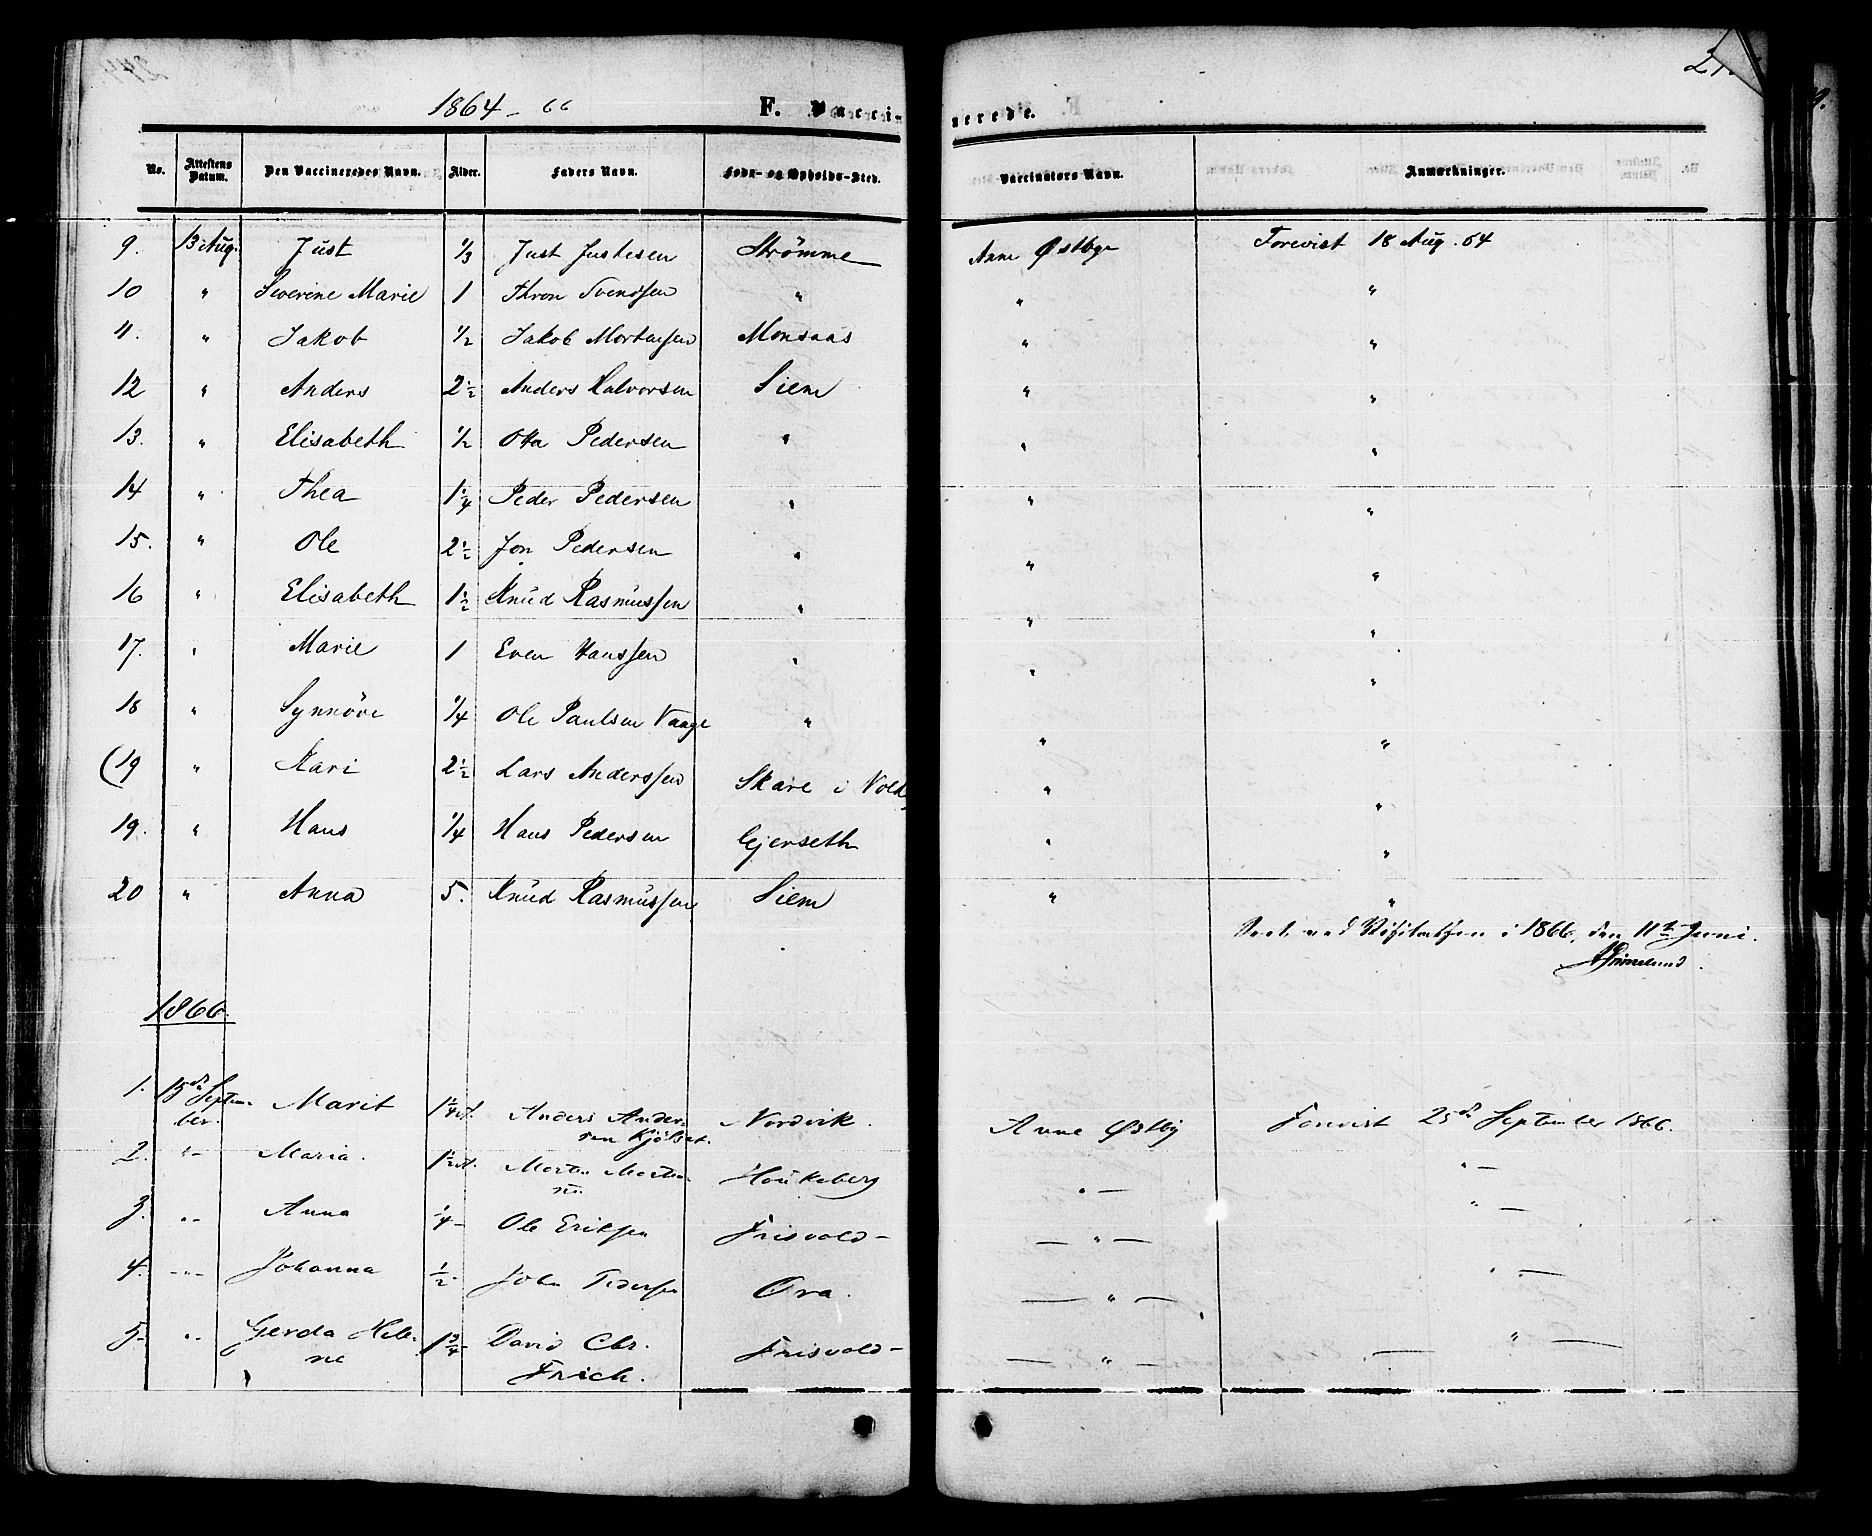 1864 - 66 F. Vaccinerede.
No. Attestens Datum. Den Vaccineredes Navn. Alder. Faders Navn. Føde- og Opholds-Sted. Vaccinators Navn. Anmærkninger.
9. 13 Aug. Just 1/3 Just Justesen Strømme Anne Østbye Forevist 18 Aug. 64
10 " Severine Marie 1 Thron Svendsen " " "
11. " Jakob 1/2 Jakob Mortensen Monsaas " "
12 " Anders 2 1/2 Anders Halvorsen Siem " "
13. " Elisabeth 1/2 Ola Pedersen " " "
14 " Thea 1 1/4 Peder Pedersen " " "
15. " Ole 2 1/2 Jon Pedersen " " "
16 " Elisabeth 1 1/2 Knud Rasmussen " " "
17. " Marie 1 Even Hanssen " " "
18 " Synnöve 1/4 Ole Paulsen Vaage " " "
(19 " Kari 2 1/2 Lars Anderssen Skare i Vold " "
19. " Hans 1/4 Hans Pedersen Gjerseth " "
20 " Anna 5. Knud Rasmussen Siem " "
Seet ved Visitatsen i 1866, den 11te Juni.
1866.
1. 15de September Marit 1 1/4 Anders Andersen Nordvik. Anne Østby Forevist 25de September 1866.
2. " Maria. 1 1/2 Morten Mortensen Haukeberg " "
3. " Anna 1/4 Ole Eriksen Frisvold " "
4. " Johanna 1/2 John Pedersen Øra. " "
5. " Gerda Helene 1 3/4 David Chr. Frich. Frisvold " "